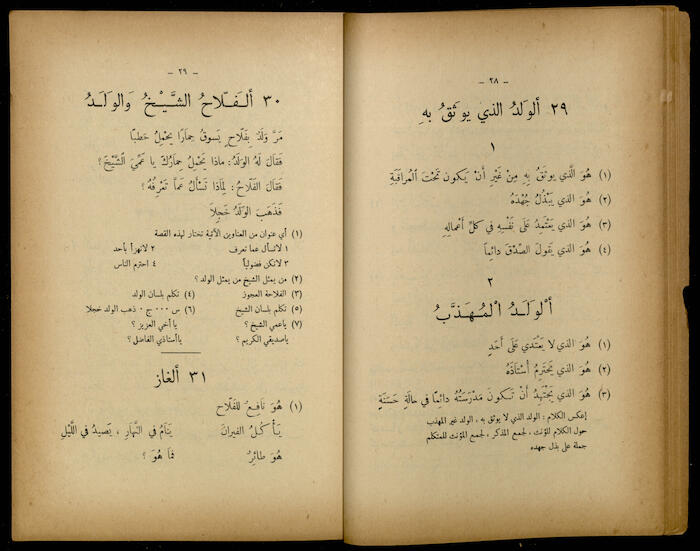 - ٢٨ -
٢٩ ألولَدُ الذي يوثَقُ بهِ
١
(١) هُوَ الَّذي يوثَقُ بِهِ مِنْ غَيْرِ أنْ يَكونَ تَحْتَ المُراقَبَةِ
(٢) هُوَ الذي يَبْذُلُ جُهْدَهُ
(٣) هُوَ الذي يَعْتَمِدُ عَلى نَفْسِهِ في كلِّ أعْمالِهِ
(٤) هُوَ الذي يَقولُ الصِّدْقَ دائِماً
٢
ألْوَلَدُ الْمُهَذَّبُ
(١) هُوَ الذي لا يَعْتَدي عَلى أحَدٍ
(٢) هُوَ الذي يَحْتَرِمُ أُسْتاذَهُ
(٣) هُوَ الذي يَجْتَهِدُ أنْ تَكونَ مَدْرَسَتُهُ دائِمًا في حالَةٍ حَسَنَةٍ
إعكس الكلام : الولد الذي لا يوثق به ، الولد غير المهذب
حول الكلام للمؤنث ، لجمع المذكر ، لجمع المؤنث للمتكلم
جملة على بذل جهده
- ٢٩ -
٣٠ ألفَلاّحُ الشَّيْخُ والوَلَدُ
مَرَّ وَلَدٌ بِفَلّاحٍ يَسوقُ حِمارًا يَحْمِلُ حَطَبًا
فَقالَ لَهُ الوَلَدُ : ماذا يَحْمِلُ حِمارُكَ يا عَمّيَ الشَّيْخَ ؟
فَقالَ الفَلّاحُ : لِماذا تَسْألُ عَمّا تَعْرِفُهُ ؟
فَذَهَبَ الوَلَدُ خَجِلاً
(١) أي عنوان من العناوين الآتية تختار لهذه القصة
١ لاتسأل عما تعرف ٢ لاتهزأ بأحد
٣ لاتكن فضولياً ٤ احترم الناس
(٢) من يمثل الشيخ من يمثل الولد ؟
(٣) الفلاحة العجوز (٤) تكلم بلسان الولد
(٥) تكلم بلسان الشيخ (٦) س ٠٠٠ ج ٠ ذهب الولد خجلا
(٧) ياعمي الشيخ ؟ يا أخي العزيز ؟
ياصديقي الكريم ؟ ياأستاذي الفاضل ؟
٣١ ألغاز
(١) هُوَ نافِعٌ للفَلّاحِ
يَأكُلُ الفيرانَ يَنامُ في النَّهارِ ، يَصيدُ في اللَّيْلِ
هُوَ طائِرٌ فَما هُوَ ؟